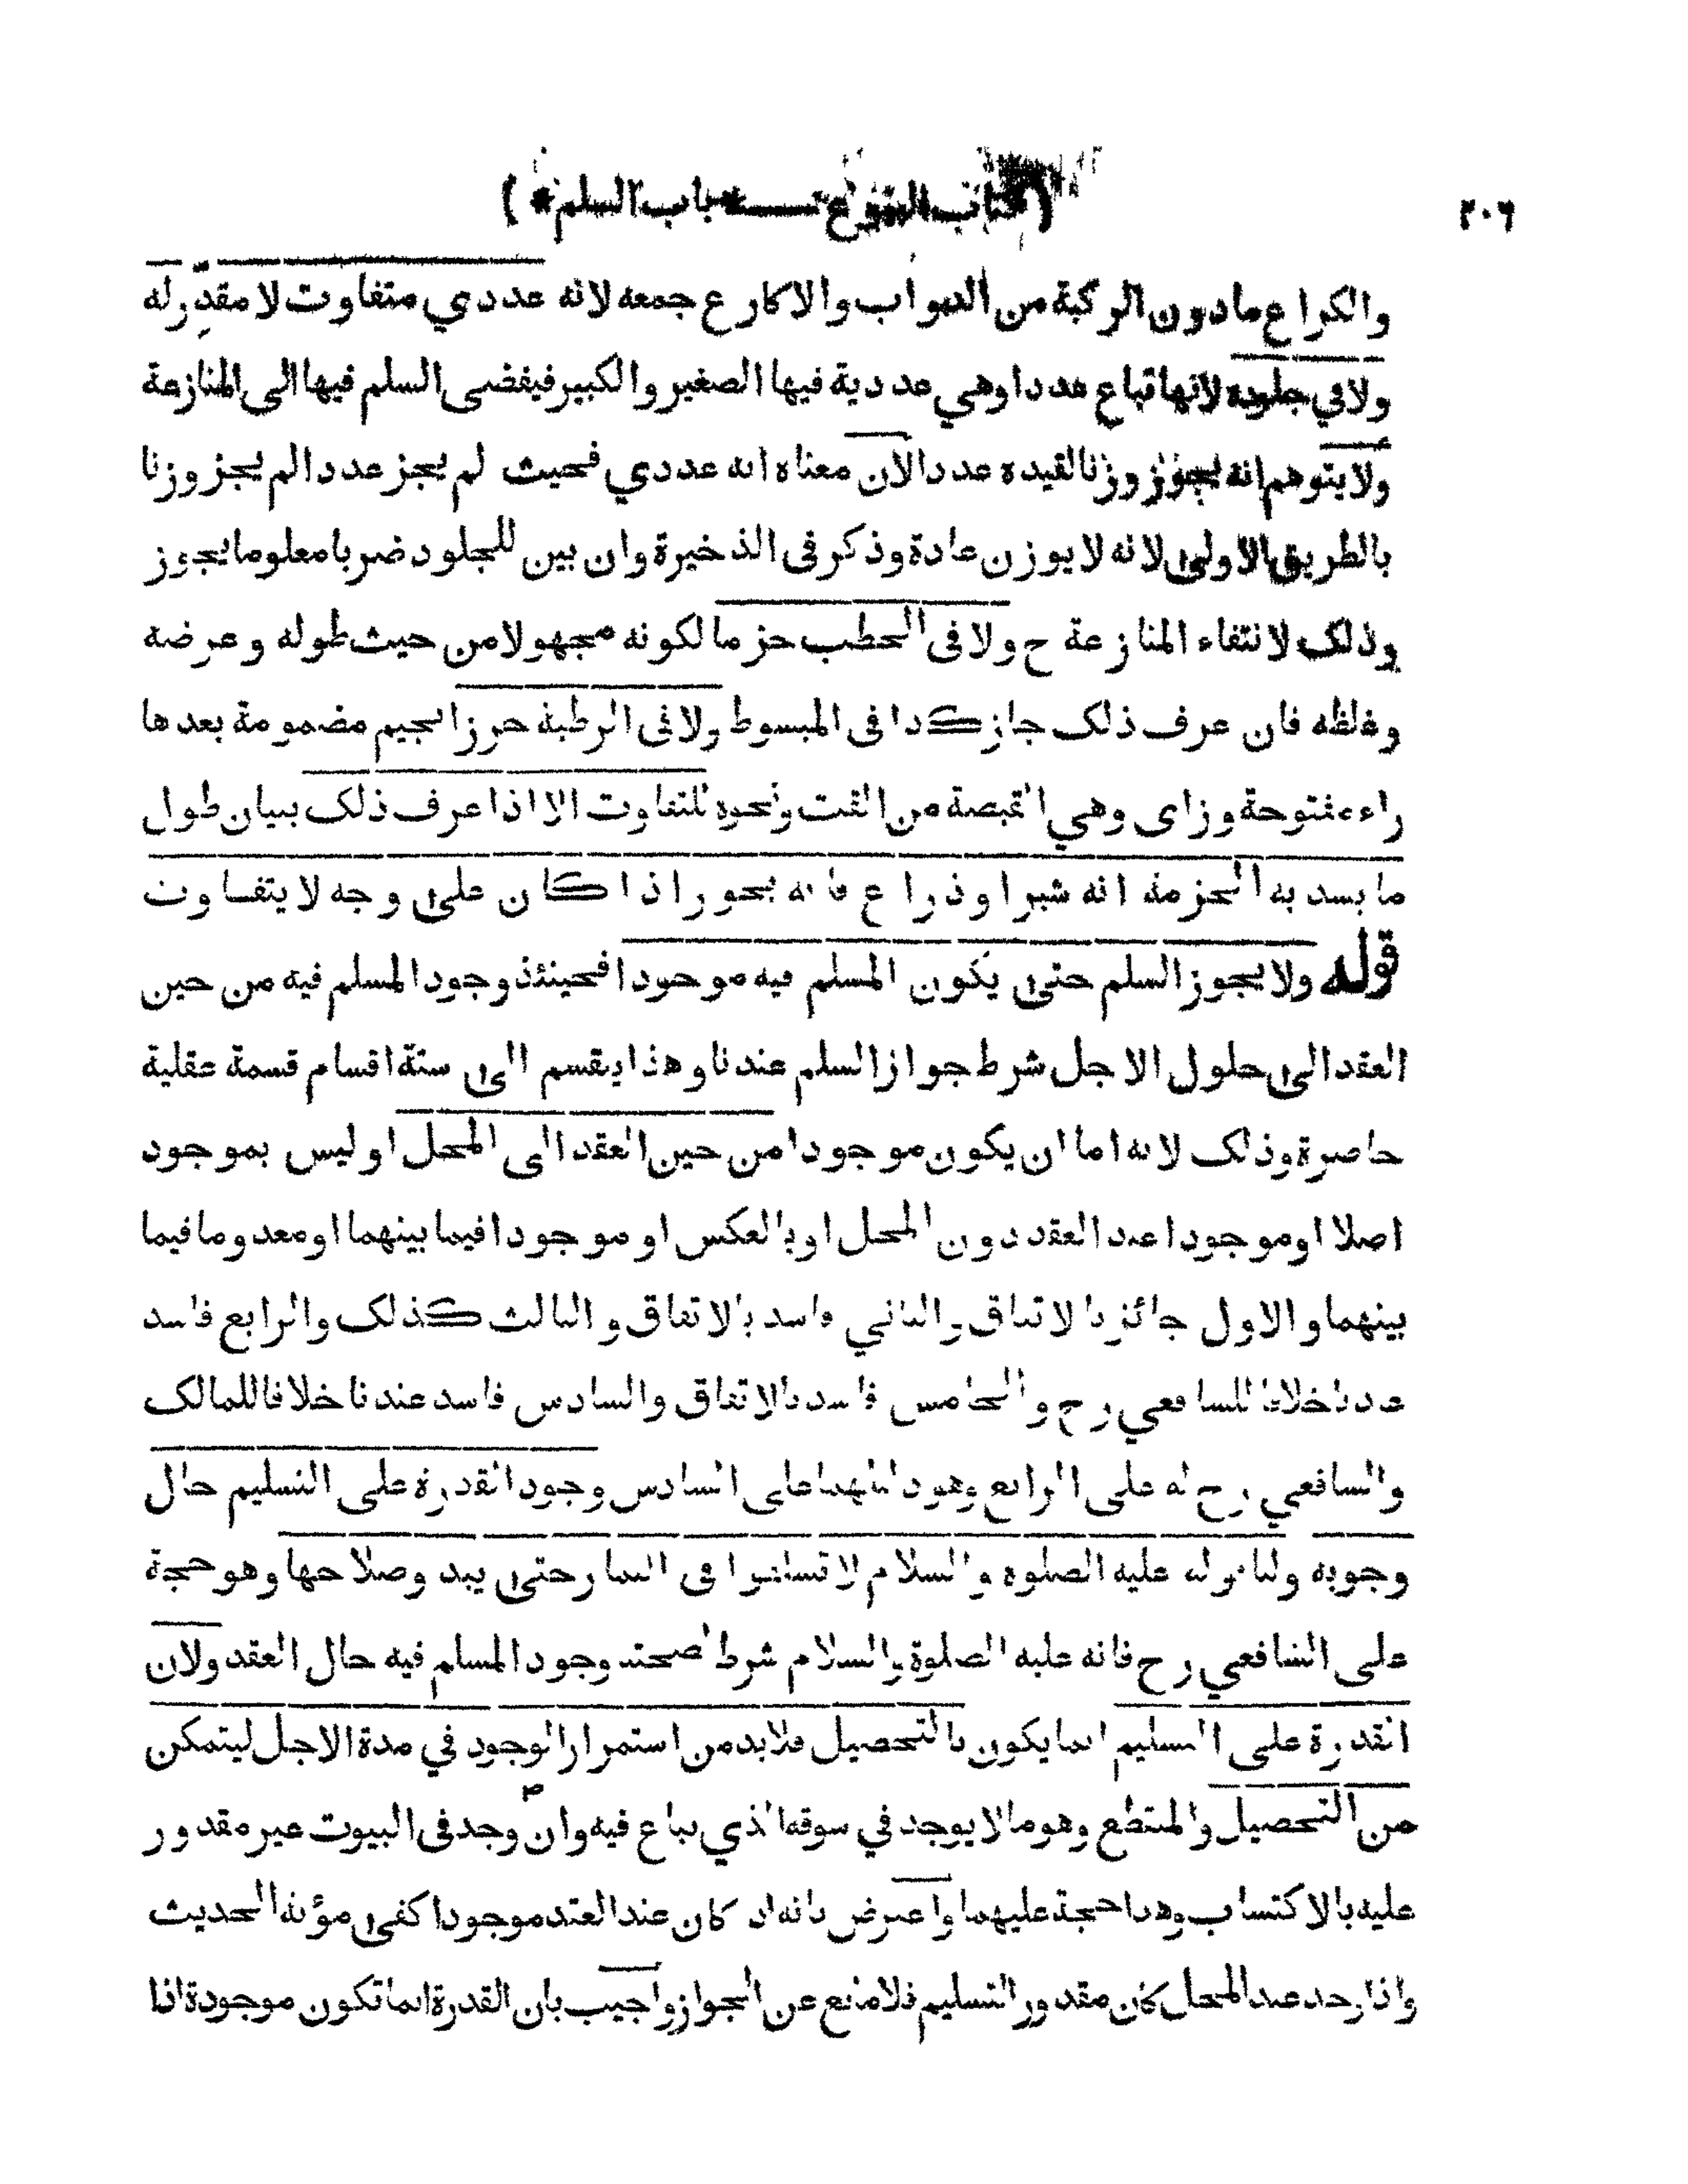 ٢٠٦
( كتاب البيوع — * باب السلم * )
والكراع مادون الركبة من الدواب والاكارع جمعه لانه عددي متفاوت لا مقدّر له
ولافي جلوده لانها تباع عددا وهي عددية فيها الصغير والكبير فيفضى السلم فيها الى المنازعة
ولا يتوهم انه يجوز وزنا لقيده عددا لان معناه انه عددي فحيث لم يجز عددا لم يجز وزنا
بالطريق الاولى لانه لا يوزن عادة وذكر فى الذخيرة وان بين للجلود ضربا معلوما يجوز
وذلك لانتفاء المنازعة ح ولا فى الحطب حزما لكونه مجهولا من حيث طوله وعرضه
وغلظه فان عرف ذلك جاز كذا فى المبسوط ولا فى الرطبة جرزا بجيم مضمومة بعدها
راء مفتوحة وزاى وهي القبصة من القت ونحوه للتفاوت الا اذا عرف ذلك ببيان طول
ما يشد به الحزمة انه شبر او ذراع فانه يجوز اذا كان على وجه لا يتفاوت
قوله ولا يجوز السلم حتى يكون المسلم فيه موجودا فحينئذ وجود المسلم فيه من حين
العقد الى حلول الاجل شرط جواز السلم عندنا وهذا ينقسم الى ستة اقسام قسمة عقلية
حاصرة وذلك لانه اما ان يكون موجودا من حين العقد الى المحل او ليس بموجود
اصلا او موجودا عند العقد دون المحل او بالعكس او موجودا فيما بينهما او معدوما فيما
بينهما والاول جائز بالاتفاق والثاني فاسد بالاتفاق والثالث كذلك والرابع فاسد
عندنا خلافا للشافعي رح والخامس فاسد بالاتفاق والسادس فاسد عندنا خلافا للمالك
والشافعي رح له على الرابع وهو دليلهما على السادس وجود القدرة على التسليم حال
وجوبه ولنا قوله عليه الصلوة والسلام لا تسلفوا فى الثمار حتى يبد وصلاحها وهو حجة
على الشافعي رح فانه عليه الصلوة والسلام شرط لصحته وجود المسلم فيه حال العقد ولان
القدرة على التسليم انما يكون بالتحصيل فلابد من استمرار الوجود في مدة الاجل ليتمكن
من التحصيل والمنقطع وهو مالا يوجد في سوقه الذي يباع فيه وان وجد فى البيوت غير مقدور
عليه بالاكتساب وهذا حجة عليهما واعترض بانه اذا كان عند العقد موجودا كفى مؤنة الحديث
واذا وجد عند المحل كان مقدور التسليم فلا مانع عن الجواز واجيب بان القدرة انما تكون موجودة اذا